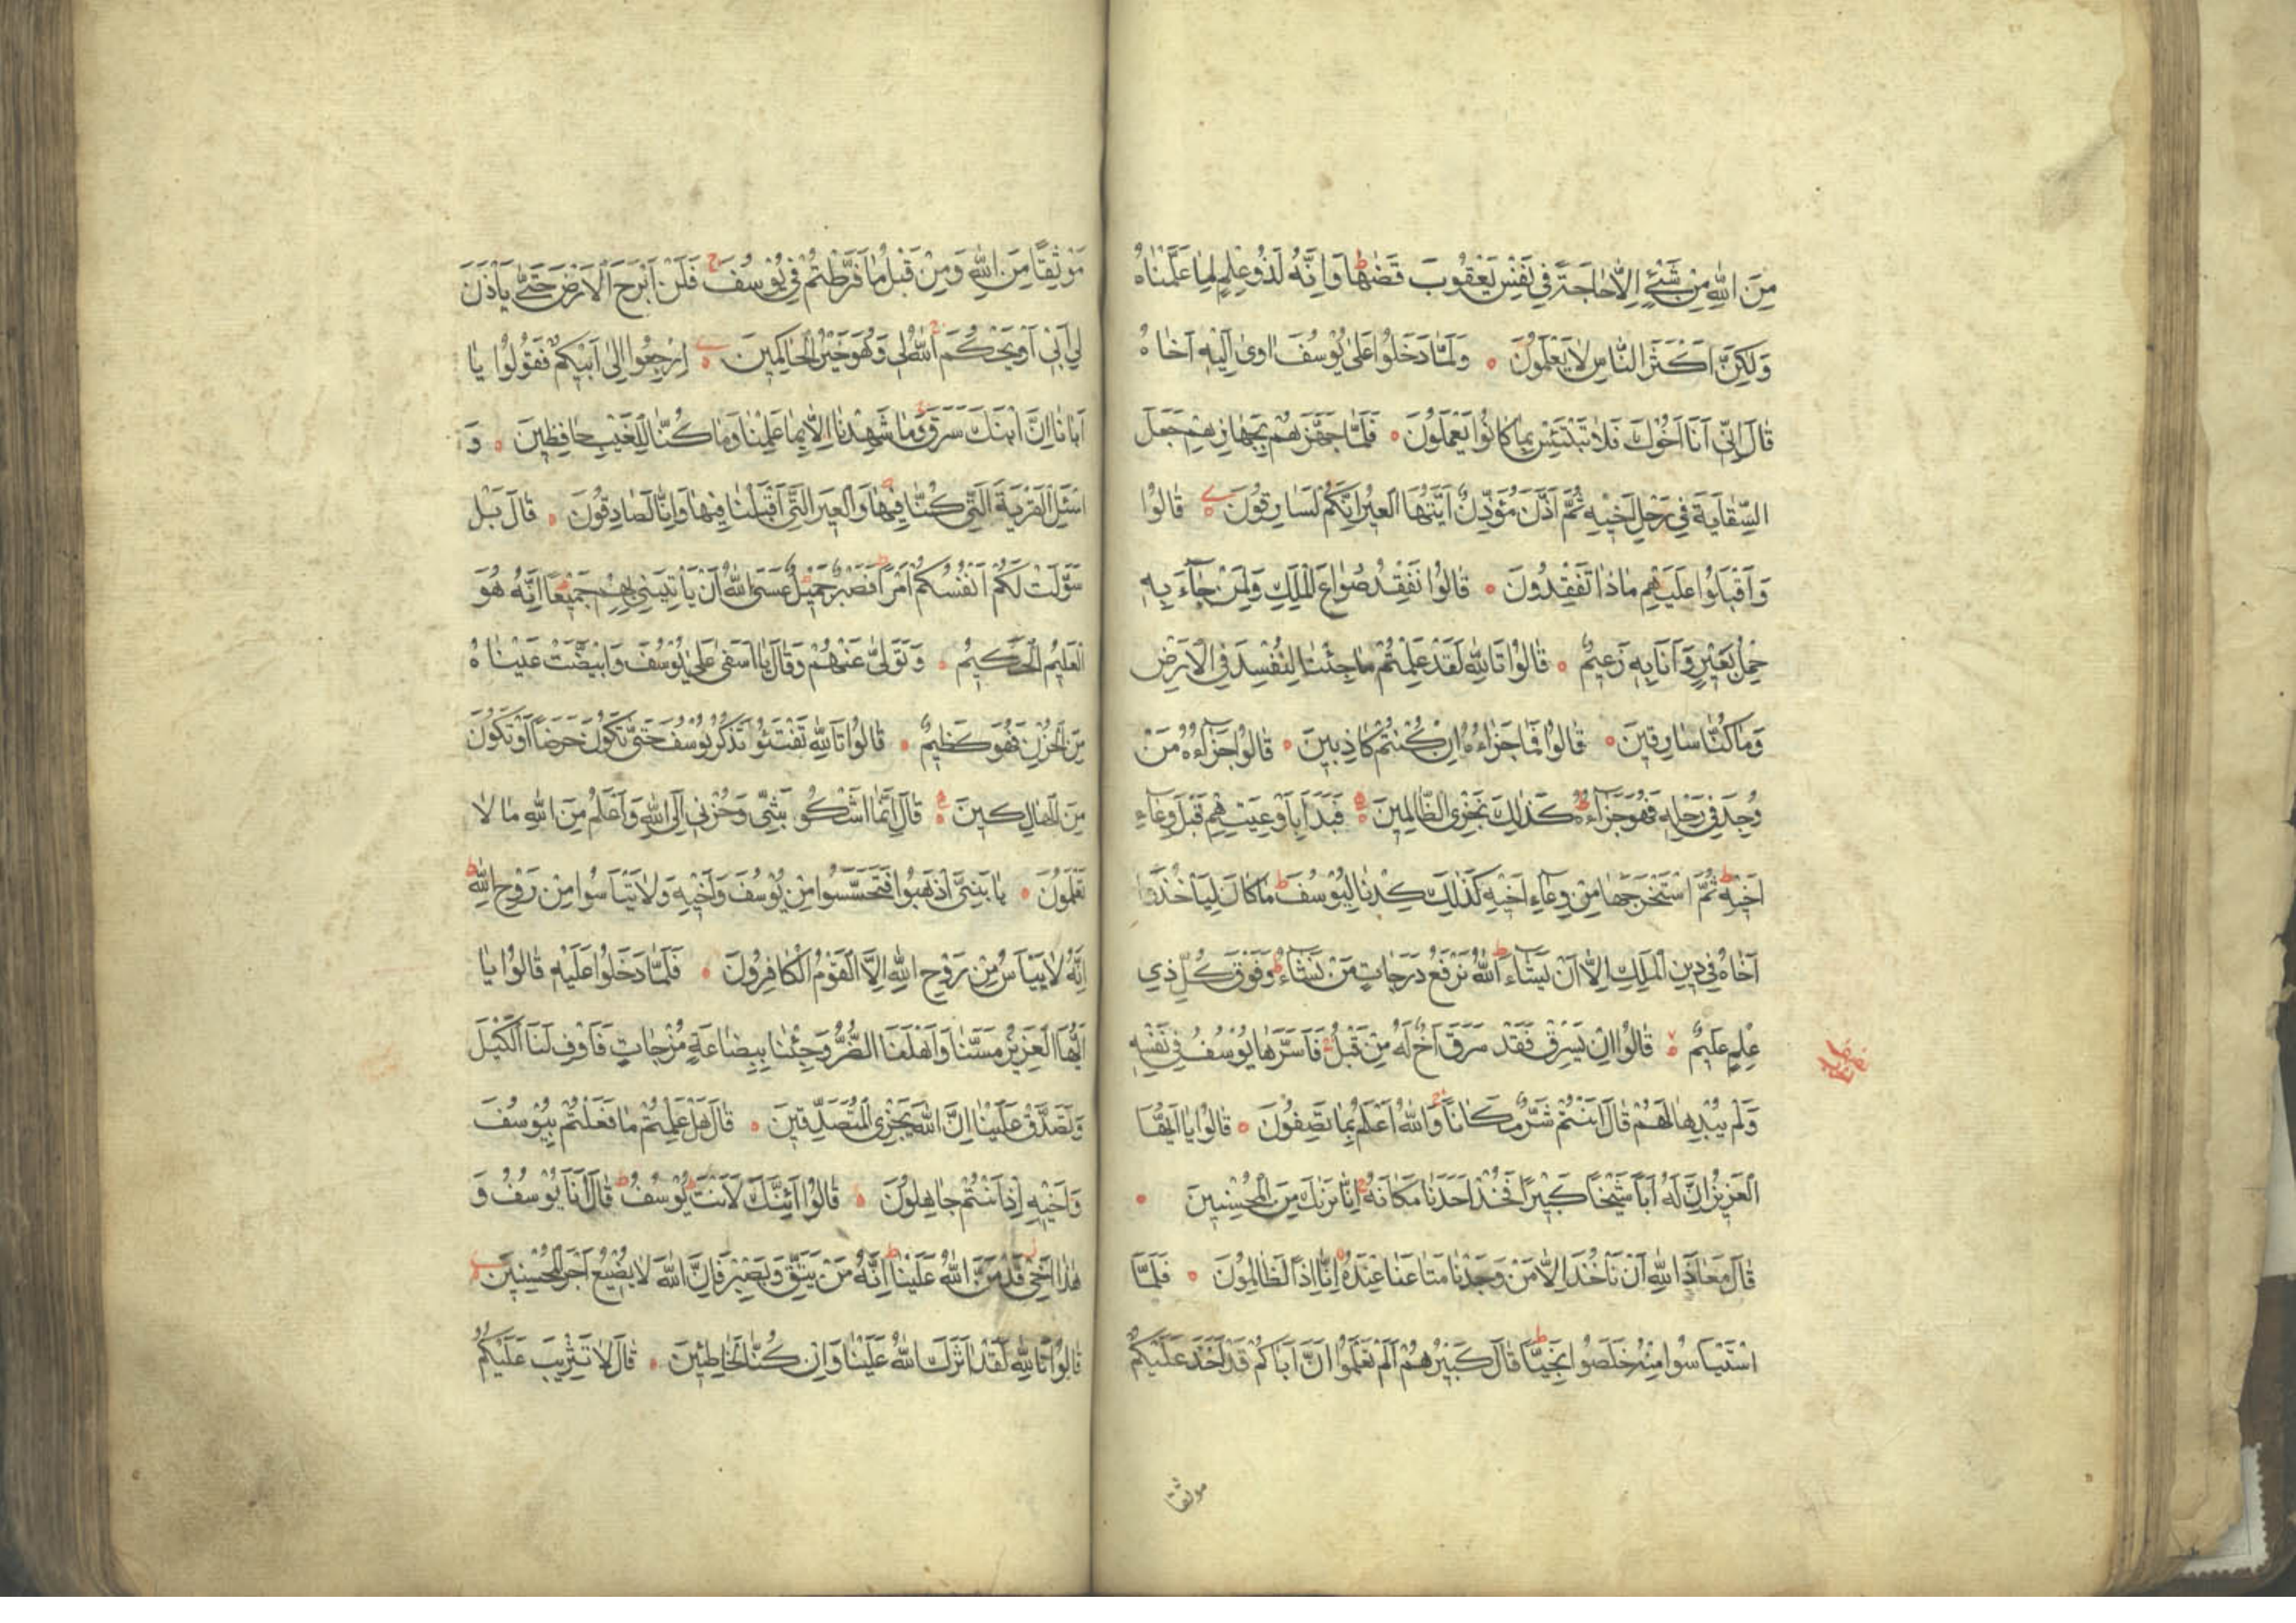 مِنَ اللّٰهِ مِنْ شَيْءٍ اِلَّا حَاجَةً فِي نَفْسِ يَعْقُوبَ قَضٰهَا وَاِنَّهُ لَذُو عِلْمٍ لِمَا عَلَّمْنَاهُ
وَلٰكِنَّ اَكْثَرَ النَّاسِ لَا يَعْلَمُونَ وَلَمَّا دَخَلُوا عَلٰى يُوسُفَ اٰوٰى اِلَيْهِ اَخَاهُ
قَالَ اِنِّي اَنَا اَخُوكَ فَلَا تَبْتَئِسْ بِمَا كَانُوا يَعْمَلُونَ فَلَمَّا جَهَّزَهُمْ بِجَهَازِهِمْ جَعَلَ
السِّقَايَةَ فِي رَحْلِ اَخِيهِ ثُمَّ اَذَّنَ مُؤَذِّنٌ اَيَّتُهَا الْعِيرُ اِنَّكُمْ لَسَارِقُونَ قَالُوا
وَاَقْبَلُوا عَلَيْهِمْ مَاذَا تَفْقِدُونَ قَالُوا نَفْقِدُ صُوَاعَ الْمَلِكِ وَلِمَنْ جَاءَ بِهِ
حِمْلُ بَعِيرٍ وَاَنَا بِهِ زَعِيمٌ قَالُوا تَاللّٰهِ لَقَدْ عَلِمْتُمْ مَا جِئْنَا لِنُفْسِدَ فِي الْاَرْضِ
وَمَا كُنَّا سَارِقِينَ قَالُوا فَمَا جَزَاءُهُ اِنْ كُنْتُمْ كَاذِبِينَ قَالُوا جَزَاءُهُ مَنْ
وُجِدَ فِي رَحْلِهِ فَهُوَ جَزَاءُهُ كَذٰلِكَ نَجْزِي الظَّالِمِينَ فَبَدَاَ بِاَوْعِيَتِهِمْ قَبْلَ وِعَاءِ
اَخِيهِ ثُمَّ اسْتَخْرَجَهَا مِنْ وِعَاءِ اَخِيهِ كَذٰلِكَ كِدْنَا لِيُوسُفَ مَا كَانَ لِيَاْخُذَ
اَخَاهُ فِي دِينِ الْمَلِكِ اِلَّا اَنْ يَشَاءَ اللّٰهُ نَرْفَعُ دَرَجَاتٍ مَنْ نَشَاءُ وَفَوْقَ كُلِّ ذِي
عِلْمٍ عَلِيمٌ قَالُوا اِنْ يَسْرِقْ فَقَدْ سَرَقَ اَخٌ لَهُ مِنْ قَبْلُ فَاَسَرَّهَا يُوسُفُ فِي نَفْسِهِ
وَلَمْ يُبْدِهَا لَهُمْ قَالَ اَنْتُمْ شَرٌّ مَكَانًا وَاللّٰهُ اَعْلَمُ بِمَا تَصِفُونَ قَالُوا يَا اَيُّهَا
الْعَزِيزُ اِنَّ لَهُ اَبًا شَيْخًا كَبِيرًا فَخُذْ اَحَدَنَا مَكَانَهُ اِنَّا نَرٰيكَ مِنَ الْمُحْسِنِينَ
قَالَ مَعَاذَ اللّٰهِ اَنْ نَاْخُذَ اِلَّا مَنْ وَجَدْنَا مَتَاعَنَا عِنْدَهُ اِنَّا اِذًا لَظَالِمُونَ فَلَمَّا
اسْتَيْاَسُوا مِنْهُ خَلَصُوا نَجِيًّا قَالَ كَبِيرُهُمْ اَلَمْ تَعْلَمُوا اَنَّ اَبَاكُمْ قَدْ اَخَذَ عَلَيْكُمْ
موثقا
مَوْثِقًا مِنَ اللّٰهِ وَمِنْ قَبْلُ مَا فَرَّطْتُمْ فِي يُوسُفَ فَلَنْ اَبْرَحَ الْاَرْضَ حَتّٰى يَاْذَنَ
لِي اَبِي اَوْ يَحْكُمَ اللّٰهُ لِي وَهُوَ خَيْرُ الْحَاكِمِينَ اِرْجِعُوا اِلٰى اَبِيكُمْ فَقُولُوا يَا
اَبَانَا اِنَّ ابْنَكَ سَرَقَ وَمَا شَهِدْنَا اِلَّا بِمَا عَلِمْنَا وَمَا كُنَّا لِلْغَيْبِ حَافِظِينَ وَ
اسْئَلِ الْقَرْيَةَ الَّتِي كُنَّا فِيهَا وَالْعِيرَ الَّتِي اَقْبَلْنَا فِيهَا وَاِنَّا لَصَادِقُونَ قَالَ بَلْ
سَوَّلَتْ لَكُمْ اَنْفُسُكُمْ اَمْرًا فَصَبْرٌ جَمِيلٌ عَسَى اللّٰهُ اَنْ يَاْتِيَنِي بِهِمْ جَمِيعًا اِنَّهُ هُوَ
الْعَلِيمُ الْحَكِيمُ وَتَوَلّٰى عَنْهُمْ وَقَالَ يَا اَسَفٰى عَلٰى يُوسُفَ وَابْيَضَّتْ عَيْنَاهُ
مِنَ الْحُزْنِ فَهُوَ كَظِيمٌ قَالُوا تَاللّٰهِ تَفْتَئُوا تَذْكُرُ يُوسُفَ حَتّٰى تَكُونَ حَرَضًا اَوْ تَكُونَ
مِنَ الْهَالِكِينَ قَالَ اِنَّمَا اَشْكُو بَثِّي وَحُزْنِي اِلَى اللّٰهِ وَاَعْلَمُ مِنَ اللّٰهِ مَا لَا
تَعْلَمُونَ يَا بَنِيَّ اذْهَبُوا فَتَحَسَّسُوا مِنْ يُوسُفَ وَاَخِيهِ وَلَا تَيْاَسُوا مِنْ رَوْحِ اللّٰهِ
اِنَّهُ لَا يَيْاَسُ مِنْ رَوْحِ اللّٰهِ اِلَّا الْقَوْمُ الْكَافِرُونَ فَلَمَّا دَخَلُوا عَلَيْهِ قَالُوا يَا
اَيُّهَا الْعَزِيزُ مَسَّنَا وَاَهْلَنَا الضُّرُّ وَجِئْنَا بِبِضَاعَةٍ مُزْجَاتٍ فَاَوْفِ لَنَا الْكَيْلَ
وَتَصَدَّقْ عَلَيْنَا اِنَّ اللّٰهَ يَجْزِي الْمُتَصَدِّقِينَ قَالَ هَلْ عَلِمْتُمْ مَا فَعَلْتُمْ بِيُوسُفَ
وَاَخِيهِ اِذْ اَنْتُمْ جَاهِلُونَ قَالُوا اَئِنَّكَ لَاَنْتَ يُوسُفُ قَالَ اَنَا يُوسُفُ وَ
هٰذَا اَخِي قَدْ مَنَّ اللّٰهُ عَلَيْنَا اِنَّهُ مَنْ يَتَّقِ وَيَصْبِرْ فَاِنَّ اللّٰهَ لَا يُضِيعُ اَجْرَ الْمُحْسِنِينَ
قَالُوا تَاللّٰهِ لَقَدْ اٰثَرَكَ اللّٰهُ عَلَيْنَا وَاِنْ كُنَّا لَخَاطِئِينَ قَالَ لَا تَثْرِيبَ عَلَيْكُمُ